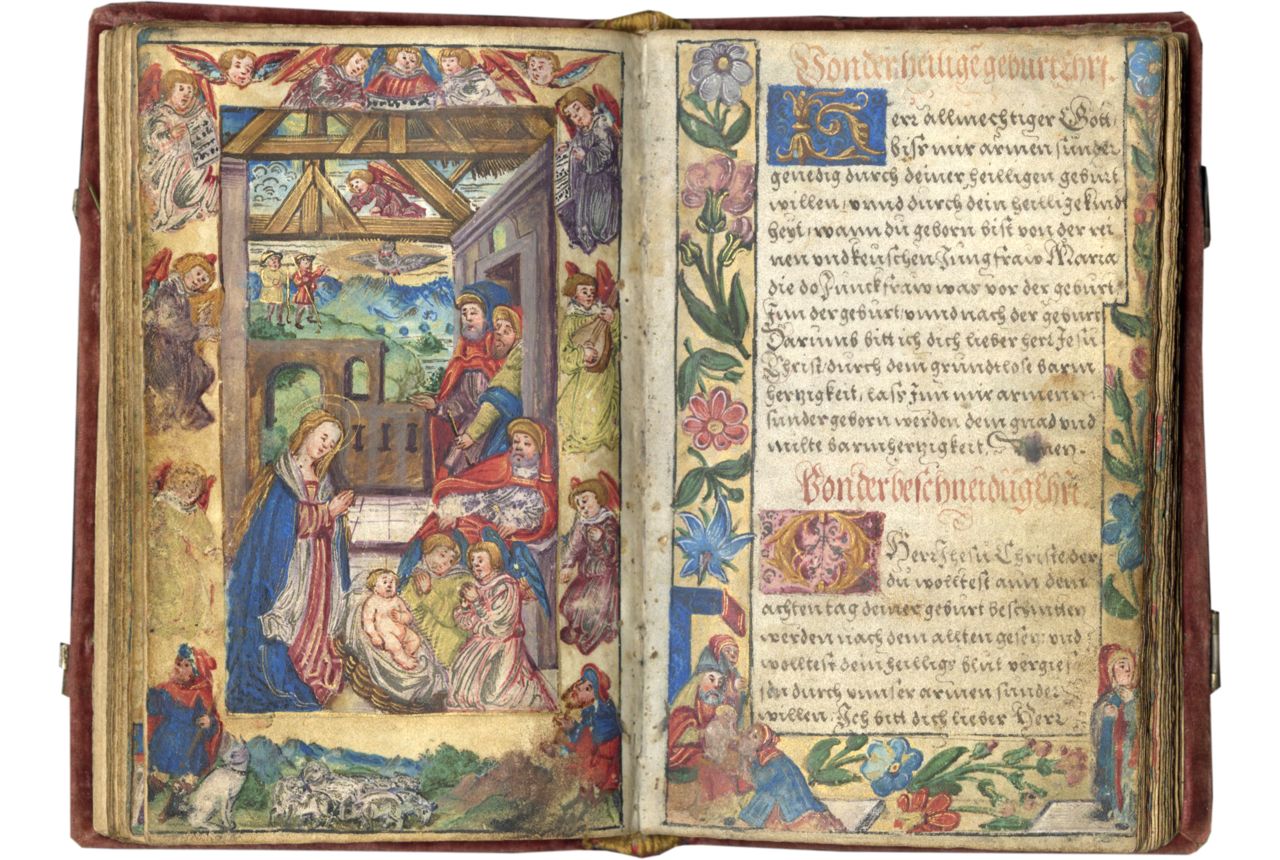 Von der heilige geburt Chri.
Herr allmechtiger Gott,
biß mir armen sünder
genedig durch deiner heiligen geburt
willen, vnnd durch dein heilige kind
heyt, wann dü geborn bist von der rei
nen vnd keüschen Jüngfraw Maria
die do Jünckfraw was vor der gebürt
Jnn der gebürt, vnnd nach der gebürt
Darümb bitt ich dich lieber herr Jesü
Christ, dürch dein gründtlose barm
hertzigkeit, lass Jnn mir armen
sünder geborn werden dein gnad vnd
milte barmhertzigkeit, Amen.
Von der beschneidüg Chri
O Herr Jhesü Christe der
dü wolltest ann dem
achten tag deiner gebürt beschnitten
werden nach dem allten gesetz, vnd
wolltest dein heiligs blüt vergies
sen dürch vnnser armen sünder
willen. Ich bitt dich lieber Herr